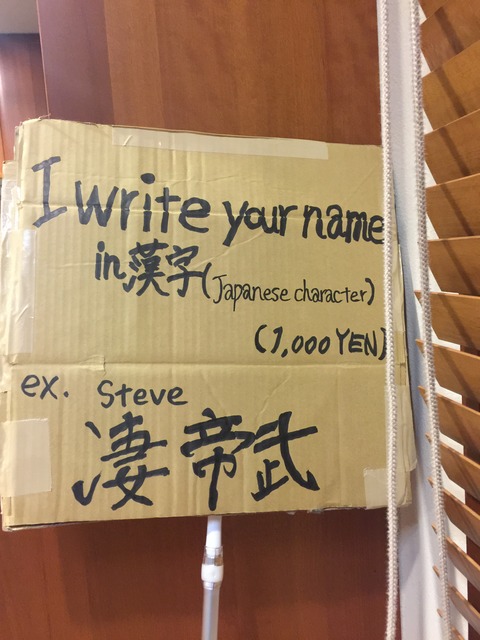 I write your name
in 漢字 (Japanese character)
(1,000 YEN)
ex. Steve
凄帝武